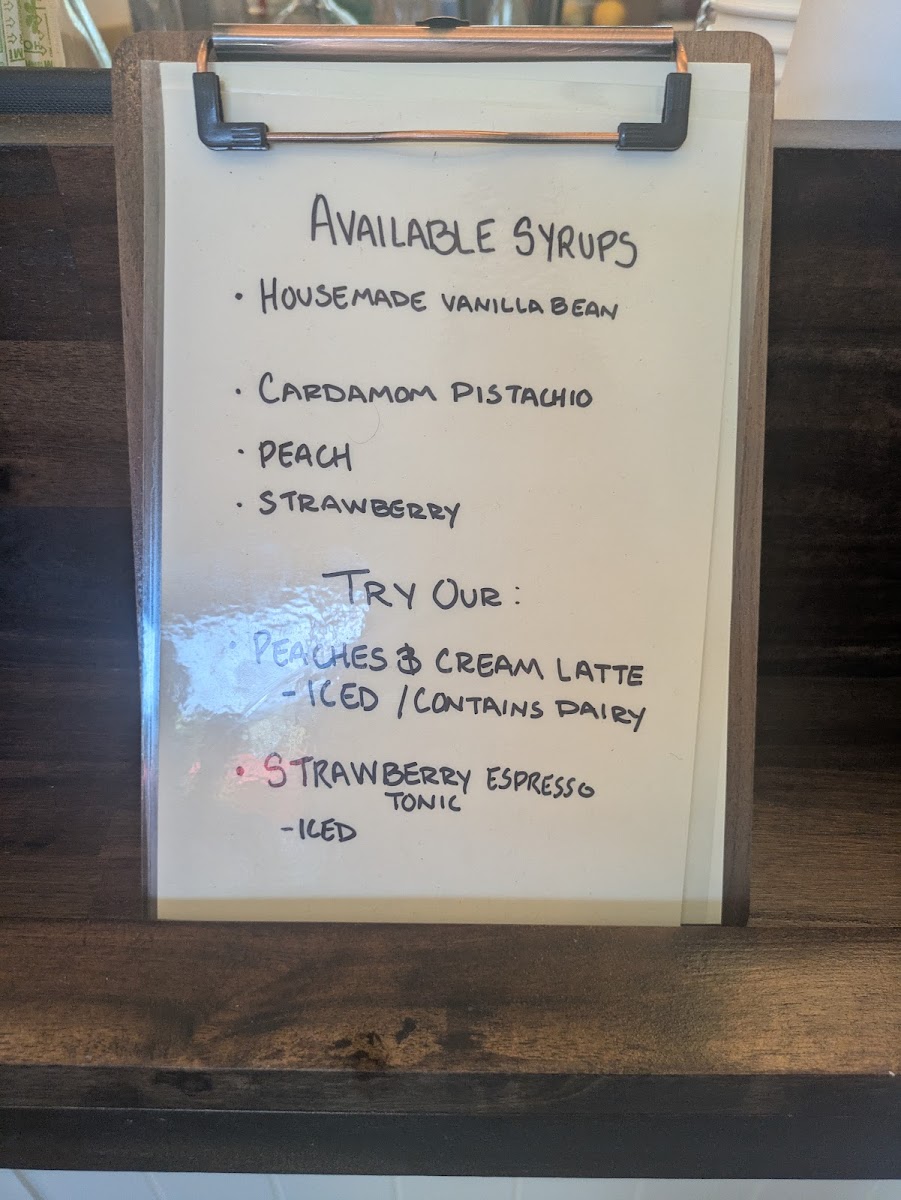 AVAILABLE SYRUPS
• HOUSEMADE VANILLA BEAN
• CARDAMOM PISTACHIO
• PEACH
• STRAWBERRY
TRY OUR:
• PEACHES & CREAM LATTE
- ICED / CONTAINS DAIRY
• STRAWBERRY ESPRESSO
TONIC
- ICED